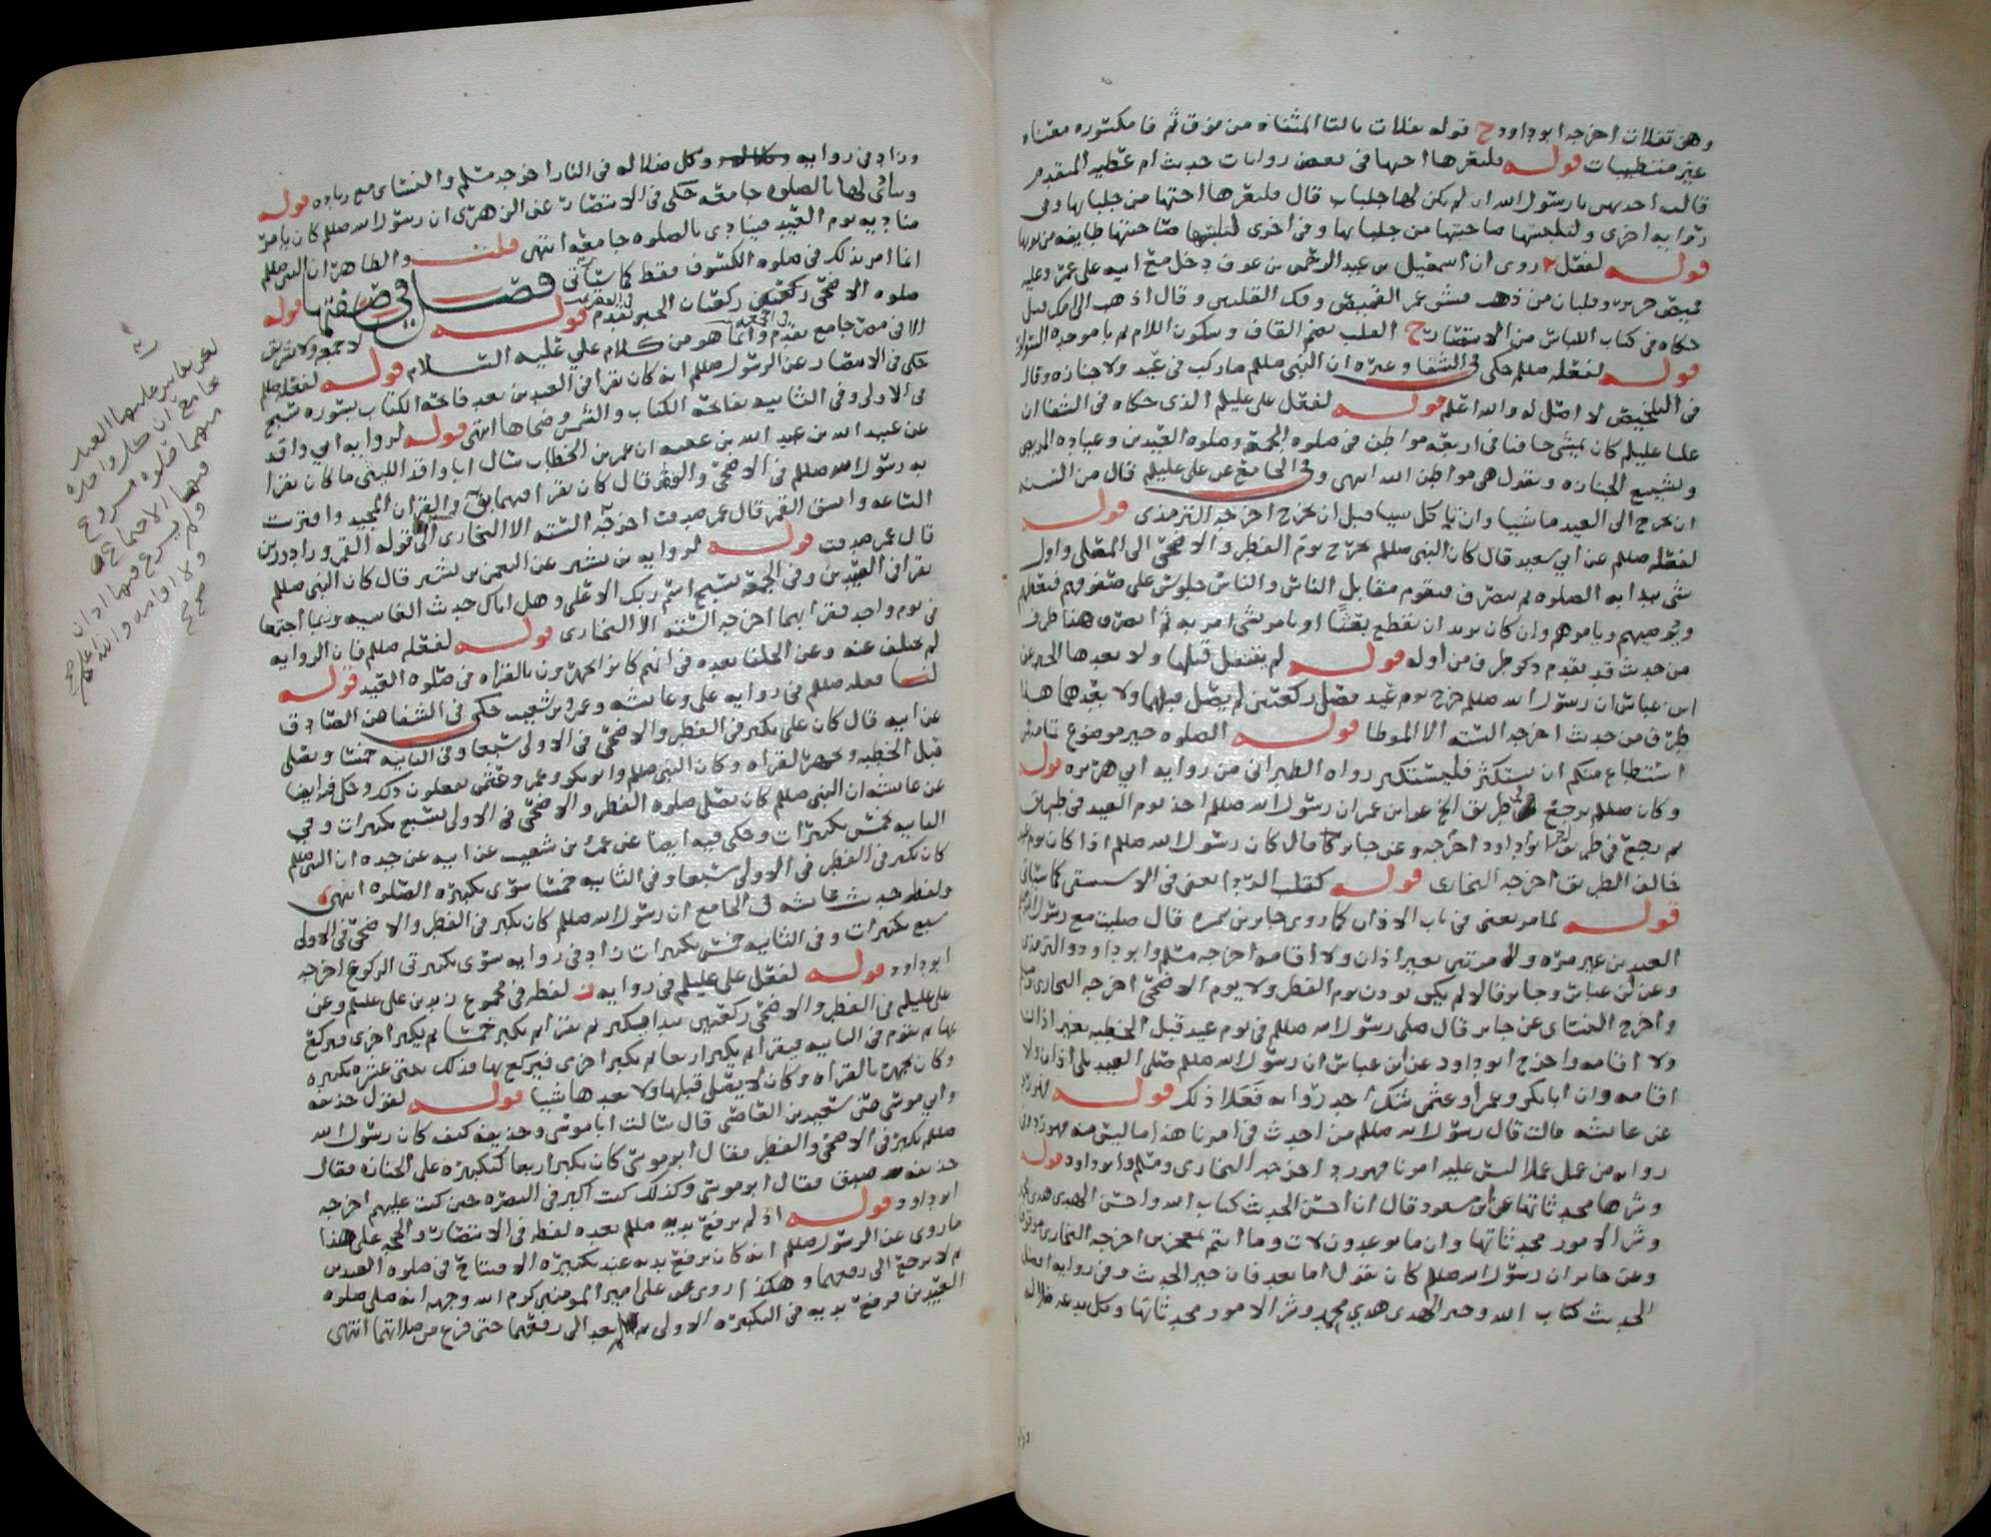 وهن تفلات اخرجه ابو داود ح قوله تفلات بالتا المثناه من فوق ثم فا مكسوره معناه
غير متطيبات قوله فلتعرها اختها في بعض روايات حديث ام عطيه المتقدم
قالت احديهن يا رسول الله ان لم يكن لها جلباب قال فلتعرها اختها من جلبابها وفي
روايه اخرى ولتلبسها صاحبتها من جلبابها وفي اخرى لتلبسها صاحبتها طايفه من ثوبها
قوله لفعل روي ان اسمعيل بن عبد الرحمن بن عوف دخل مع ابيه على عمر وعليه
قميص حرير وقلبان من ذهب فشق عمر القميص وفك القلبين وقال اذهب الى امك
حكاه في كتاب اللباس من الانتصار ح القلب بضم القاف وسكون اللام ثم با موحده السوار
قوله لفعله صللم حكى في الشفا وغيره ان النبي صللم ما ركب في عيد ولا جنازه وقال
في التلخيص لا اصل له والله اعلم قوله لفعل علي عليلم الذي حكاه في الشفا ان
عليا عليلم كان يمشي حافيا في اربعه مواطن في صلوه الجمعه وصلوه العيدين وعياده المريض
وتشييع الجنازه ويقول هي مواطن الله انتهى وفي الجامع عن علي عليلم قال من السنه
ان يخرج الى العيد ماشيا وان ياكل شيا قبل ان يخرج اخرجه الترمذي قوله
لفعله صللم عن ابي سعيد قال كان النبي صللم يخرج يوم الفطر والاضحى الى المصلى واول
شي يبدا به الصلوه ثم ينصرف فيقوم مقابل الناس والناس جلوس على صفوفهم فيعظهم
ويوصيهم ويامرهم وان كان يريد ان يقطع بعثا او يامر بشي امر به ثم انصرف هذا طرف
من حديث قد تقدم ذكر طرف من اوله قوله لم يتنفل قبلها ولا بعدها الخبر عن
ابن عباس ان رسول الله صللم خرج يوم عيد فصلى ركعتين لم يصل قبلهما ولا بعدهما هذا
طرف من حديث اخرجه السته الا الموطا قوله الصلوه خير موضوع تمامه فمن
استطاع منكم ان يستكثر فليستكثر رواه الطبراني من روايه ابي هريره قوله
وكان صللم يرجع في طريق الخ عن ابن عمر ان رسول الله صللم اخذ يوم العيد في طريق
ثم رجع في طريق اخر ابو داود اخرجه وعن جابر قال كان رسول الله صللم اذا كان يوم عيد
خالف الطريق اخرجه البخاري قوله كقلب الردا يعني في الاستسقى كما سياتي
قوله لما مر يعني في باب الاذان كما روى جابر بن سمره قال صليت مع رسول الله صللم
العيدين غير مره ولا مرتين بغير اذان ولا اقامه اخرجه مسلم وابو داود والترمذي
وعن ابن عباس وجابر قالا لم يكن يوذن يوم الفطر ولا يوم الاضحى اخرجه البخاري ومسلم
واخرج النسائي عن جابر قال صلى رسول الله صللم في يوم عيد قبل الخطبه بغير اذان
ولا اقامه واخرج ابو داود عن ابن عباس ان رسول الله صللم صلى العيد بلا اذان ولا
اقامه وان ابا بكر وعمر او عثمن شك احد رواته فعلا ذلك قوله
عن عايشه قالت قال رسول الله صللم من احدث في امرنا هذا ما ليس منه فهو رد وفي
روايه من عمل عملا ليس عليه امرنا فهو رد اخرجه البخاري ومسلم وابو داود قوله
وشرها محدثاتها عن ابن مسعود قال ان احسن الحديث كتاب الله واحسن الهدى هدى محمد
وشر الامور محدثاتها وان ما توعدون لات وما انتم بمعجزين اخرجه البخاري موقوفا
وعن جابر ان رسول الله صللم كان يقول اما بعد فان خير الحديث وفي روايه افضل
الحديث كتاب الله وخير الهدى هدي محمد وشر الامور محدثاتها وكل بدعه ضلاله
وزاد في روايه وكل ضلاله في النار اخرجه مسلم والنسائي مع زياده قوله
وينادى لها بالصلوه جامعه حكى في الانتصار عن الزهري ان رسول الله صللم كان يامر
مناديه يوم العيد فينادي بالصلوه جامعه انتهى قلت والظاهر ان النبي صللم
انما امر بذلك في صلوه الكسوف فقط كما سياتي فصل في صفتها قوله
صلوه الاضحى ركعتان ركعتان الخبر تقدم في السفر قوله لا جمعه ولا تشريق
الا في مصر جامع تقدم في الجمعه وانما هو من كلام علي عليه السلام قوله لفعله صللم
حكى في الانتصار عن الرسول صللم انه كان يقرا في العيدين بعد فاتحه الكتاب بسوره سبح
في الاولى وفي الثانيه بفاتحه الكتاب والشمس وضحاها انتهى قوله لروايه ابي واقد
عن عبيد الله بن عبد الله بن عتبه ان عمر بن الخطاب سال ابا واقد الليثي ما كان يقرا
به رسول الله صللم في الاضحى والفطر قال كان يقرا فيهما بق والقران المجيد واقتربت
الساعه وانشق القمر قال عمر صدقت اخرجه السته الا البخاري الى قوله القمر وزاد رزين
قال عمر صدقت قوله لروايه بن بشير عن النعمن بن بشير قال كان النبي صللم
يقرا في العيدين وفي الجمعه بسبح اسم ربك الاعلى وهل اتاك حديث الغاشيه وربما اجتمعا
في يوم واحد فقرا بهما اخرجه السته الا البخاري قوله لفعله صللم فان الروايه
لم تختلف عنه وعن الخلفا بعده في انهم كانوا يجهرون بالقراه في صلوه العيد قوله
لنا فعله صللم في روايه علي وعايشه وعمرو بن شعيب حكى في الشفا عن الصادق
عن ابيه قال كان علي يكبر في الفطر والاضحى في الاولى سبعا وفي الثانيه خمسا ويصلي
قبل الخطبه ويجهر القراه وكان النبي صللم وابو بكر وعمر وعثمن يفعلون ذلك وحكى فيه ايضا
عن عايشه ان النبي صللم كان يصلي صلوه الفطر والاضحى في الاولى بسبع تكبيرات وفي
الثانيه بخمس تكبيرات وحكى فيه ايضا عن عمرو بن شعيب عن ابيه عن جده ان النبي صللم
كان يكبر في الفطر في الاولى سبعا وفي الثانيه خمسا سوى تكبيره الصلوه انتهى
ولفظ حديث عايشه في الجامع ان رسول الله صللم كان يكبر في الفطر والاضحى في الاولى
سبع تكبيرات وفي الثانيه خمس تكبيرات زاد في روايه سوى تكبيرتي الركوع اخرجه
ابو داود قوله لفعل علي عليلم في روايه ز لفظه في مجموع زيد بن علي عليلم وعن
علي عليلم في الفطر والاضحى ركعتين يبدا فيكبر ثم يقرا ثم يكبر خمسا ثم يكبر اخرى فيركع
بها ثم يقوم في الثانيه فيقرا ثم يكبر اربعا ثم يكبر اخرى فيركع بها فذلك ثنتي عشره تكبيره
وكان يجهر بالقراه وكان لا يصلي قبلها ولا بعدها شيا قوله لقول حذيفه
وابي موسى عن سعيد بن العاصي قال سالت ابا موسى وحذيفه كيف كان رسول الله
صللم يكبر في الاضحى والفطر فقال ابو موسى كان يكبر اربعا كتكبيره على الجنازه فقال
حذيفه صدق فقال ابو موسى وكذلك كنت اكبر في البصره حين كنت عليهم اخرجه
ابو داود قوله اذ لم يرفع يديه صللم بعده لفظه في الانتصار والحجه على هذا
ما روي عن الرسول صللم انه كان يرفع يديه عند تكبيره الافتتاح في صلوه العيدين
ثم لا يرجع الى رفعهما وهكذا روي عن علي امير المومنين كرم الله وجهه انه صلى صلوه
العيدين فرفع يديه في التكبيره الاولى ثم لم يعد الى رفعهما حتى فرغ من صلاتهما انتهى
جامع ان كل واحده
منهما صلوه مشروع
فيها الاجتماع
ولا يشرع فيها اذان
ولا اقامه والله اعلم
صح